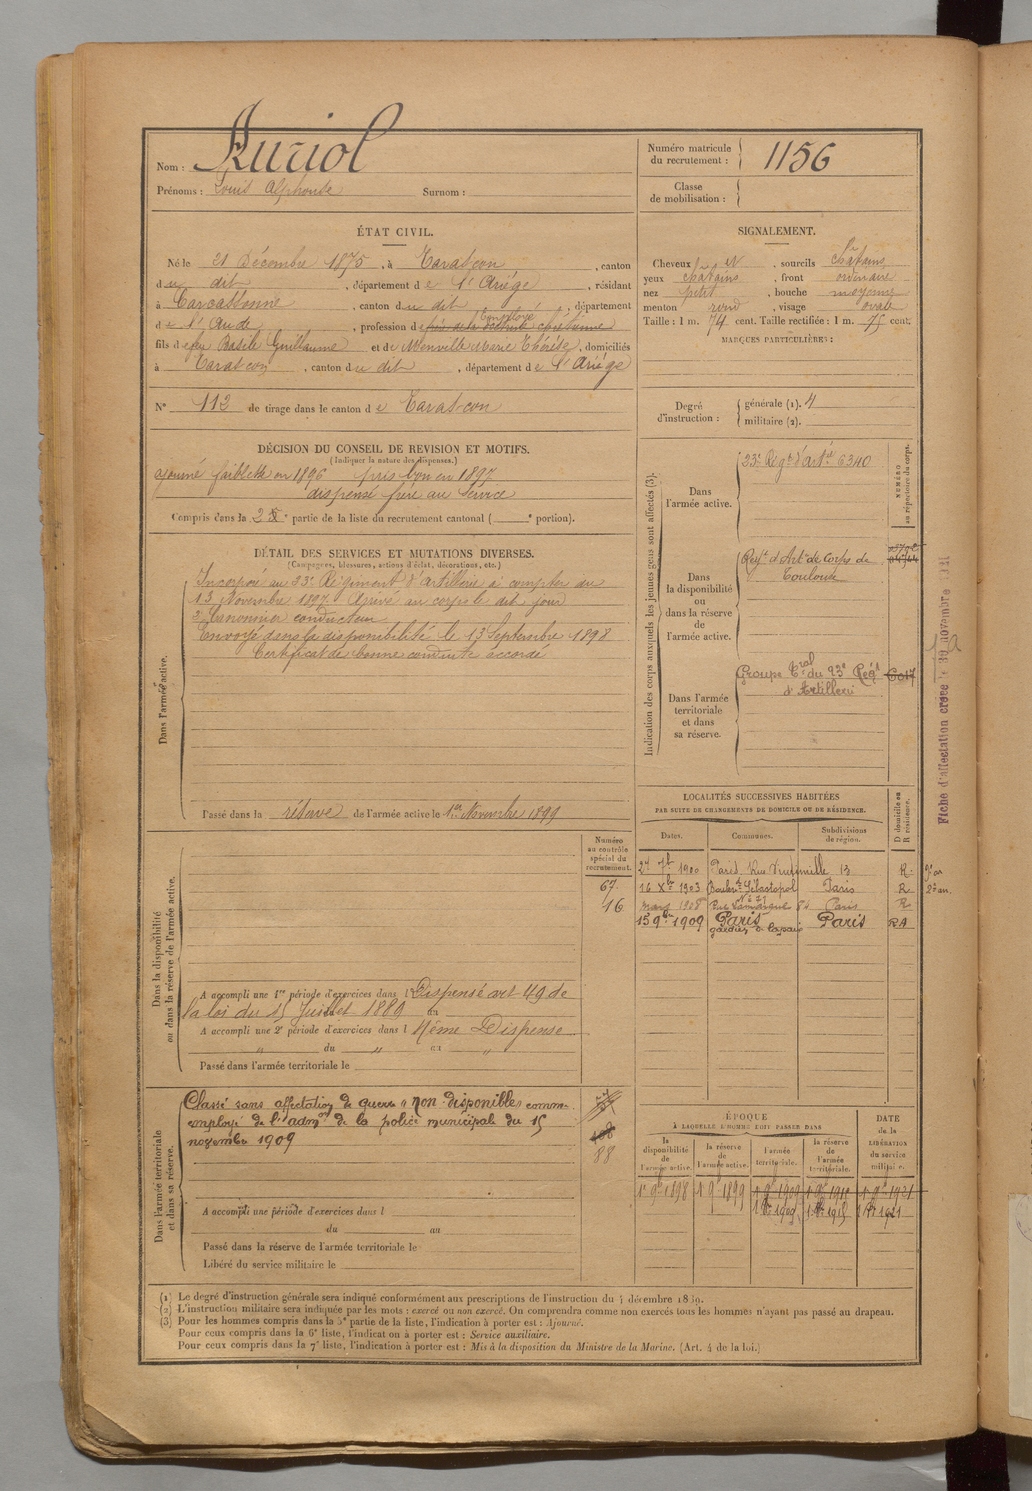 Nom : Auriol
Prénoms : Louis Alphonse Surnom :
Numéro matricule du recrutement : 1156
Classe de mobilisation :
ÉTAT CIVIL.
Né le 21 Décembre 1875, à Tarascon, canton
du dit, département de l'Ariège, résidant
à Carcassonne, canton du dit, département
de l'Aude, profession de frère de la doctrine chrétienne Employé
fils de feu Basile Guillaume et de Menville Marie Thérèse, domiciliés
à Tarascon, canton du dit, département de l'Ariège
N° 112 de tirage dans le canton de Tarascon
SIGNALEMENT.
Cheveux et, sourcils châtains
yeux châtains, front ordinaire
nez petit, bouche moyenne
menton rond, visage ovale
Taille : 1 m. 74 cent. Taille rectifiée : 1 m. 75 cent.
MARQUES PARTICULIÈRES :
Degré d'instruction : générale (1). 4
militaire (2).
DÉCISION DU CONSEIL DE REVISION ET MOTIFS.
(Indiquer la nature des dispenses.)
ajourné faiblesse en 1896 pris bon en 1897
dispensé frère au service
Compris dans la 2e partie de la liste du recrutement cantonal ( e portion).
DÉTAIL DES SERVICES ET MUTATIONS DIVERSES.
(Campagnes, blessures, actions d'éclat, décorations, etc.)
Dans l'armée active.
Incorporé au 23e Régiment d'artillerie à compter du
13 Novembre 1897. Arrivé au corps le dit jour
2e Canonnier conducteur
Envoyé dans la disponibilité le 13 Septembre 1898
Certificat de bonne conduite accordé
Passé dans la réserve de l'armée active le 1er Novembre 1899
Indication des corps auxquels les jeunes gens sont affectés (3).
NUMÉRO au répertoire du corps.
Dans l'armée active.
23e Régt d'artie 6340
Dans la disponibilité ou dans la réserve de l'armée active.
Regt d'Artie de Corps de
Toulouse
Dans l'armée territoriale et dans sa réserve.
Groupe Tral du 23e Régt 6017
d'Artillerie
Fiche d'affectation créée le 30 novembre 1921
LOCALITÉS SUCCESSIVES HABITÉES
PAR SUITE DE CHANGEMENTS DE DOMICILE OU DE RÉSIDENCE.
Dates. Communes. Subdivisions de région. D domicile ou R résidence.
1900 Paris Rue 13 R
16 Xbre 1903 Boulevd Sébastopol Paris R
mars 1908 Rue Paris R
15 9bre 1909 Paris Paris RA
gardien de la paix
Dans la disponibilité ou dans la réserve de l'armée active.
Numéro au contrôle spécial du recrutement.
67
16
A accompli une 1re période d'exercices dans l Dispensé art 49 de
la loi du 15 Juillet 1889 au
A accompli une 2e période d'exercices dans l Même Dispense
" du " au "
Passé dans l'armée territoriale le
Dans l'armée territoriale et dans sa réserve.
Classé sans affectation de guerre "non disponible" comme
employé de l'admon de la police municipale du 15
novembre 1909
88
A accompli une période d'exercices dans l
du au
Passé dans la réserve de l'armée territoriale le
Libéré du service militaire le
ÉPOQUE
À LAQUELLE L'HOMME DOIT PASSER DANS
la disponibilité de l'armée active. la réserve de l'armée active. l'armée territoriale. la réserve de l'armée territoriale.
DATE de la LIBÉRATION du service militaire.
1er 9bre 1898 1er 9bre 1899 1er 9bre 1909 1er 9bre 1921
1909 1915 1921
(1) Le degré d'instruction générale sera indiqué conformément aux prescriptions de l'instruction du 4 décembre 1889.
(2) L'instruction militaire sera indiquée par les mots : exercé ou non exercé. On comprendra comme non exercés tous les hommes n'ayant pas passé au drapeau.
(3) Pour les hommes compris dans la 5e partie de la liste, l'indication à porter est : Ajourné.
Pour ceux compris dans la 6e liste, l'indication à porter est : Service auxiliaire.
Pour ceux compris dans la 7e liste, l'indication à porter est : Mis à la disposition du Ministre de la Marine. (Art. 4 de la loi.)